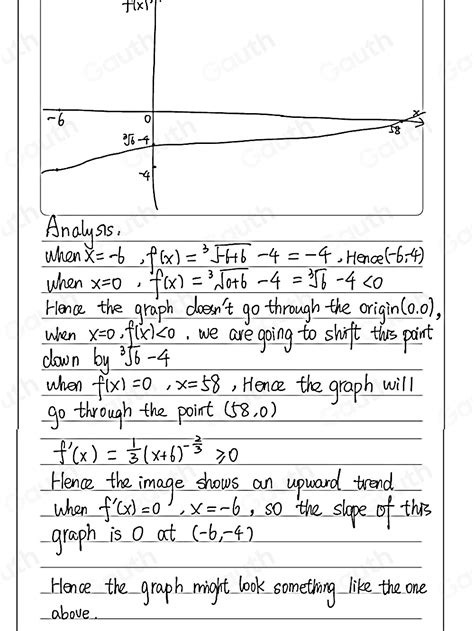 f(x)
-6 0 58 x
³√6-4
-4
Analysis,
when x=-6 , f(x) = ³√-6+6 -4 = -4 , Hence(-6,-4)
when x=0 , f(x) = ³√0+6 -4 = ³√6 -4 <0
Hence the graph doesn't go through the origin(0,0),
when x=0, f(x)<0 . we are going to shift this point
down by ³√6 -4
when f(x) =0 , x=58 , Hence the graph will
go through the point (58,0)
f'(x) = 1/3 (x+6)^-2/3 ⩾0
Hence the image shows an upward trend
when f'(x)=0 , x=-6, so the slope of this
graph is 0 at (-6,-4)
Hence the graph might look something like the one
above.